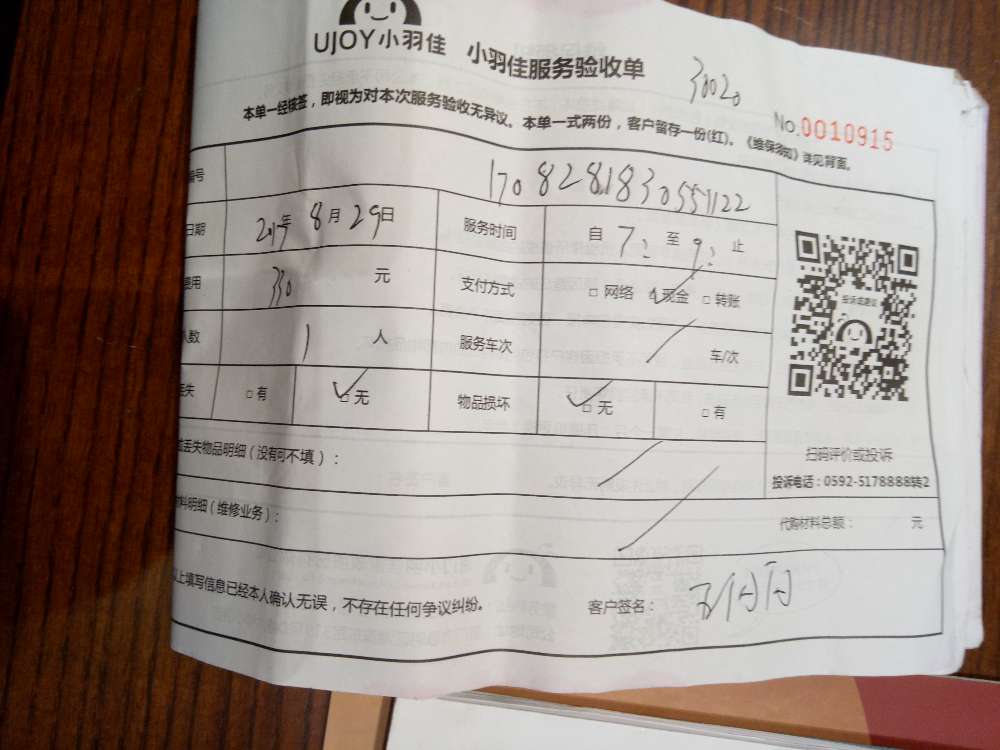 UJOY小羽佳 小羽佳服务验收单
38020
本单一经核签，即视为对本次服务验收无异议。本单一式两份，客户留存一份(红)。《维保须知》详见背面。
No.0010915
编号 1708281830551122
日期 2017年 8月29日 服务时间 自 7: 至 9: 止
费用 330 元 支付方式 □网络 ☑现金 □转账
人数 1 人 服务车次 / 车/次
丢失 □有 ☑无 物品损坏 ☑无 □有
投诉或建议
扫码评价或投诉
投诉电话：0592-5178888转2
丢失物品明细（没有可不填）：
材料明细（维修业务）：
代购材料总额： 元
以上填写信息已经本人确认无误，不存在任何争议纠纷。 客户签名：